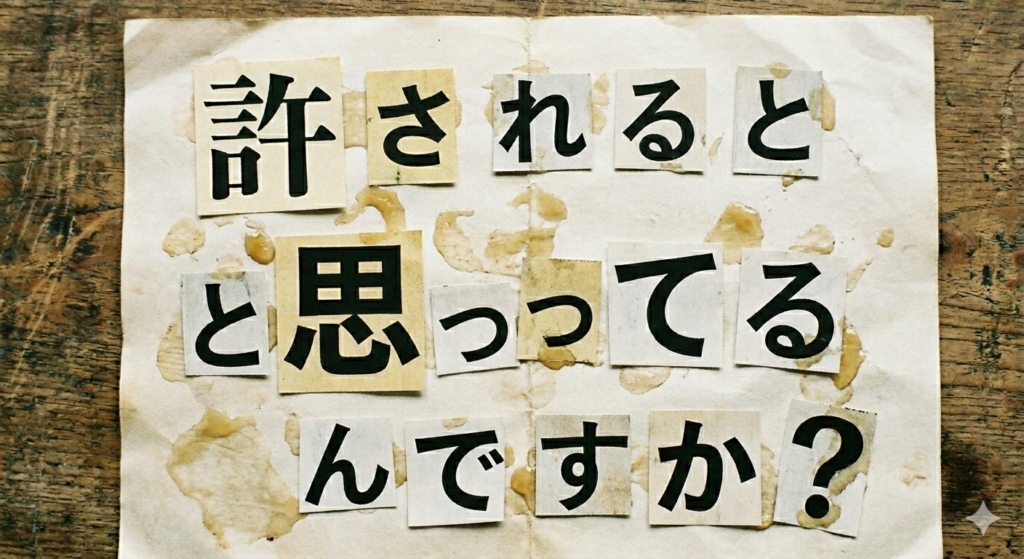 許されると
と思っってる
んですか?